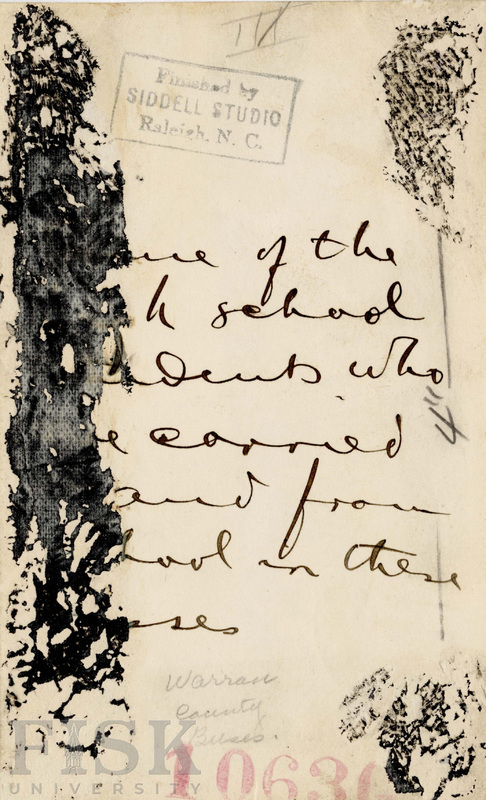 III
Finished by
SIDDELL STUDIO
Raleigh, N. C.
me of the
h school
dents who
e carried
and from
hool in these
sses
4"
Warran
County
Buses.
10630
FISK
UNIVERSITY